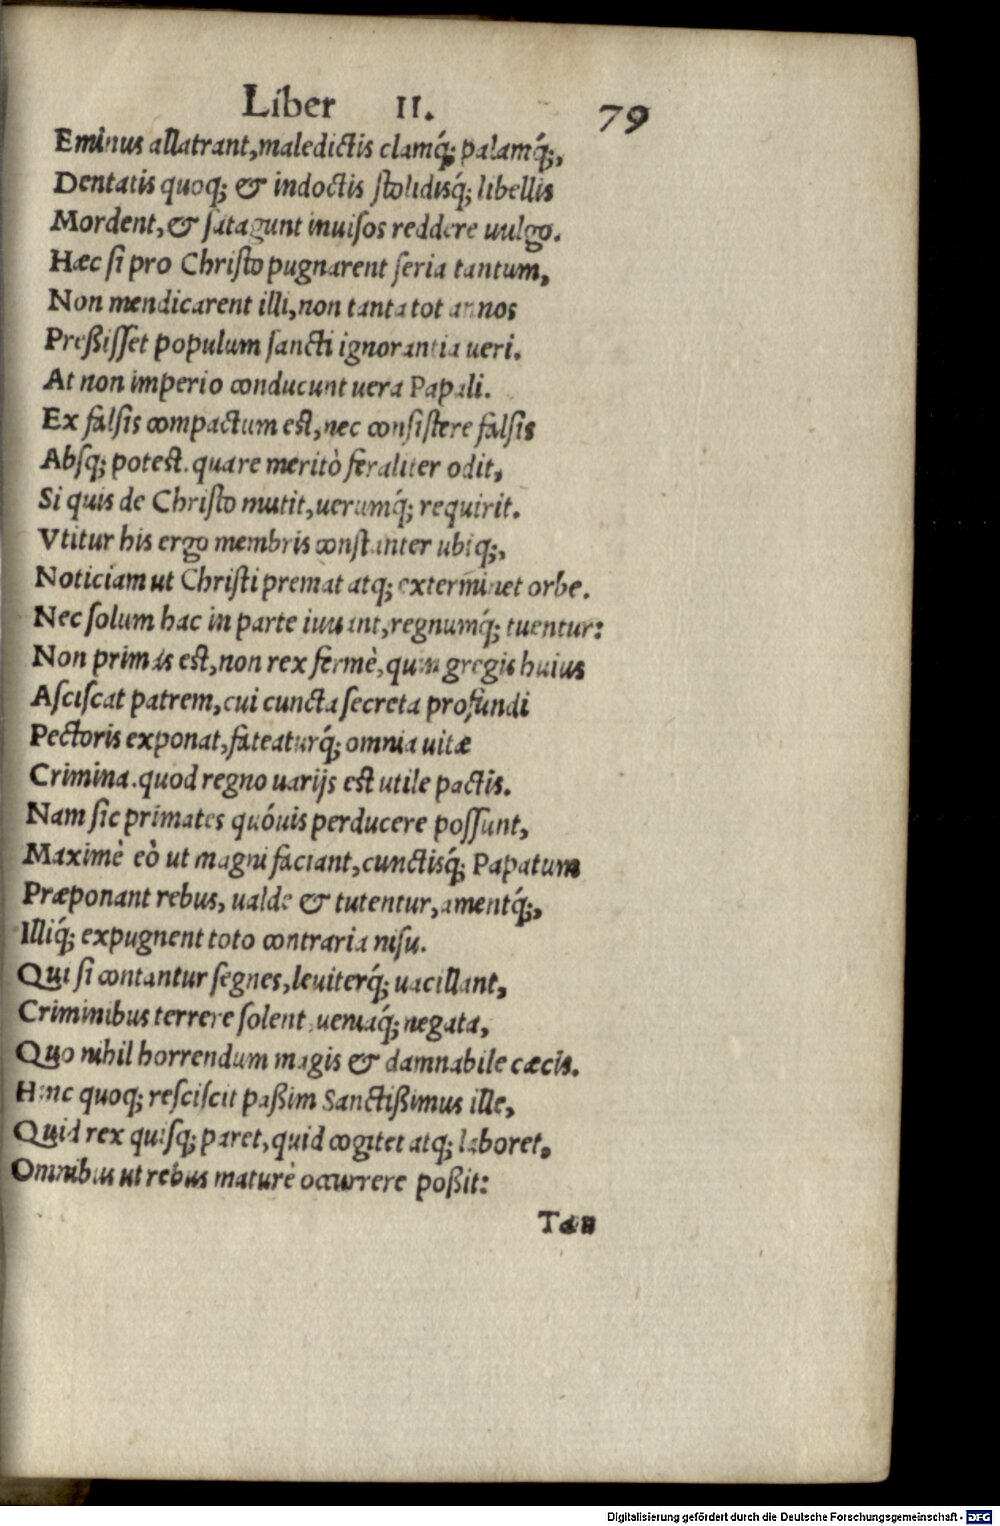 Liber II. 79
Eminus allatrant, maledictis clamq́; palamq́;,
Dentatis quoq; & indoctis stolidisq́; libellis
Mordent, & satagunt inuisos reddere uulgo.
Hæc si pro Christo pugnarent seria tantum,
Non mendicarent illi, non tanta tot annos
Preßisset populum sancti ignorantia ueri.
At non imperio conducunt uera Papali.
Ex falsis compactum est, nec consistere falsis
Absq; potest. quare meritò feraliter odit,
Si quis de Christo mutit, uerumq́; requirit.
Vtitur his ergo membris constanter ubiq;,
Noticiam ut Christi premat atq; exterminet orbe.
Nec solum hac in parte iuuant, regnumq́; tuentur:
Non primas est, non rex fermè, quin gregis huius
Asciscat patrem, cui cuncta secreta profundi
Pectoris exponat, fateaturq́; omnia uitæ
Crimina. quod regno uarijs est utile pactis.
Nam sic primates quóuis perducere possunt,
Maximè eò ut magni faciant, cunctisq́; Papatum
Præponant rebus, ualde & tutentur, amentq́;,
Illiq́; expugnent toto contraria nisu.
Qui si contantur segnes, leuiterq́; uacillant,
Criminibus terrere solent, ueniaq́; negata,
Quo nihil horrendum magis & damnabile cæcis.
Hinc quoq; resciscit paßim Sanctißimus ille,
Quid rex quisq; paret, quid cogitet atq; laboret,
Omnibus ut rebus maturè occurrere poßit:
Tan
Digitalisierung gefördert durch die Deutsche Forschungsgemeinschaft - DFG